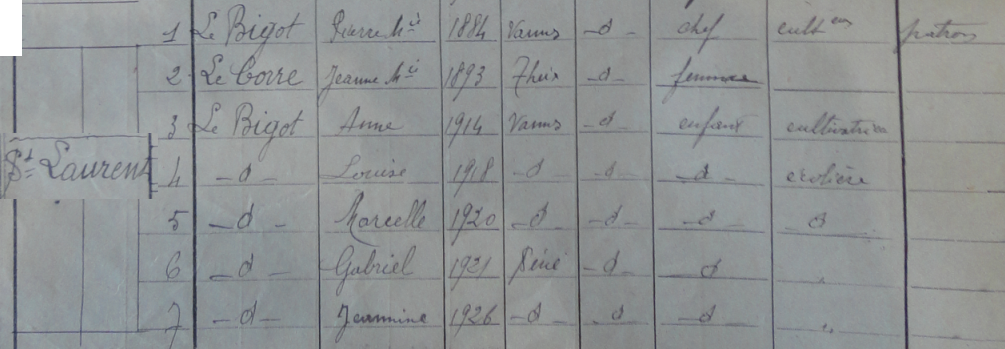 1 Le Bigot Pierre Mie 1884 Vannes -d- chef culteur patron
2 Le Corre Jeanne Mie 1893 Theix -d- femme
3 Le Bigot Anne 1914 Vannes -d- enfant cultivatrice
St Laurent 4 -d- Louise 1918 -d- -d- -d- écolière
5 -d- Marcelle 1920 -d- -d- -d- d
6 -d- Gabriel 1921 Séné -d- d
7 -d- Jeannine 1926 -d- d -d-